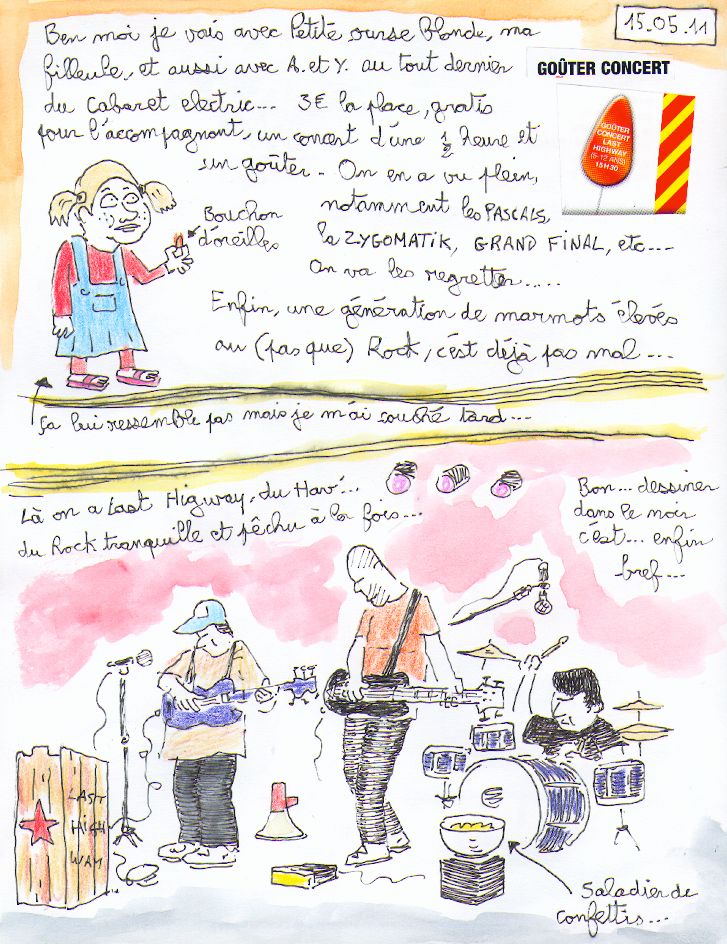 15.05.11
Ben moi je vais avec Petite ourse blonde, ma
filleule, et aussi avec A. et Y. au tout dernier
du Cabaret electric... 3€ la place, gratis
pour l'accompagnant, un concert d'une 1/2 heure et
un goûter. On en a vu plein,
notamment les PASCALS,
la ZYGOMATIK, GRAND FINAL, etc...
On va les regretter.....
Enfin, une génération de marmots élevés
au (pas que) Rock, c'est déjà pas mal...
GOÛTER CONCERT
GOÛTER
CONCERT
LAST
HIGHWAY
(5-12 ANS)
15H30
Bouchon
d'oreilles
Ça lui ressemble pas mais je m'ai couché tard...
Là on a Last Higway, du Hav'...
du Rock tranquille et pêchu à la fois...
Bon... dessiner
dans le noir
c'est... enfin
bref...
LAST
HIGH
WAY
Saladier de
confettis...